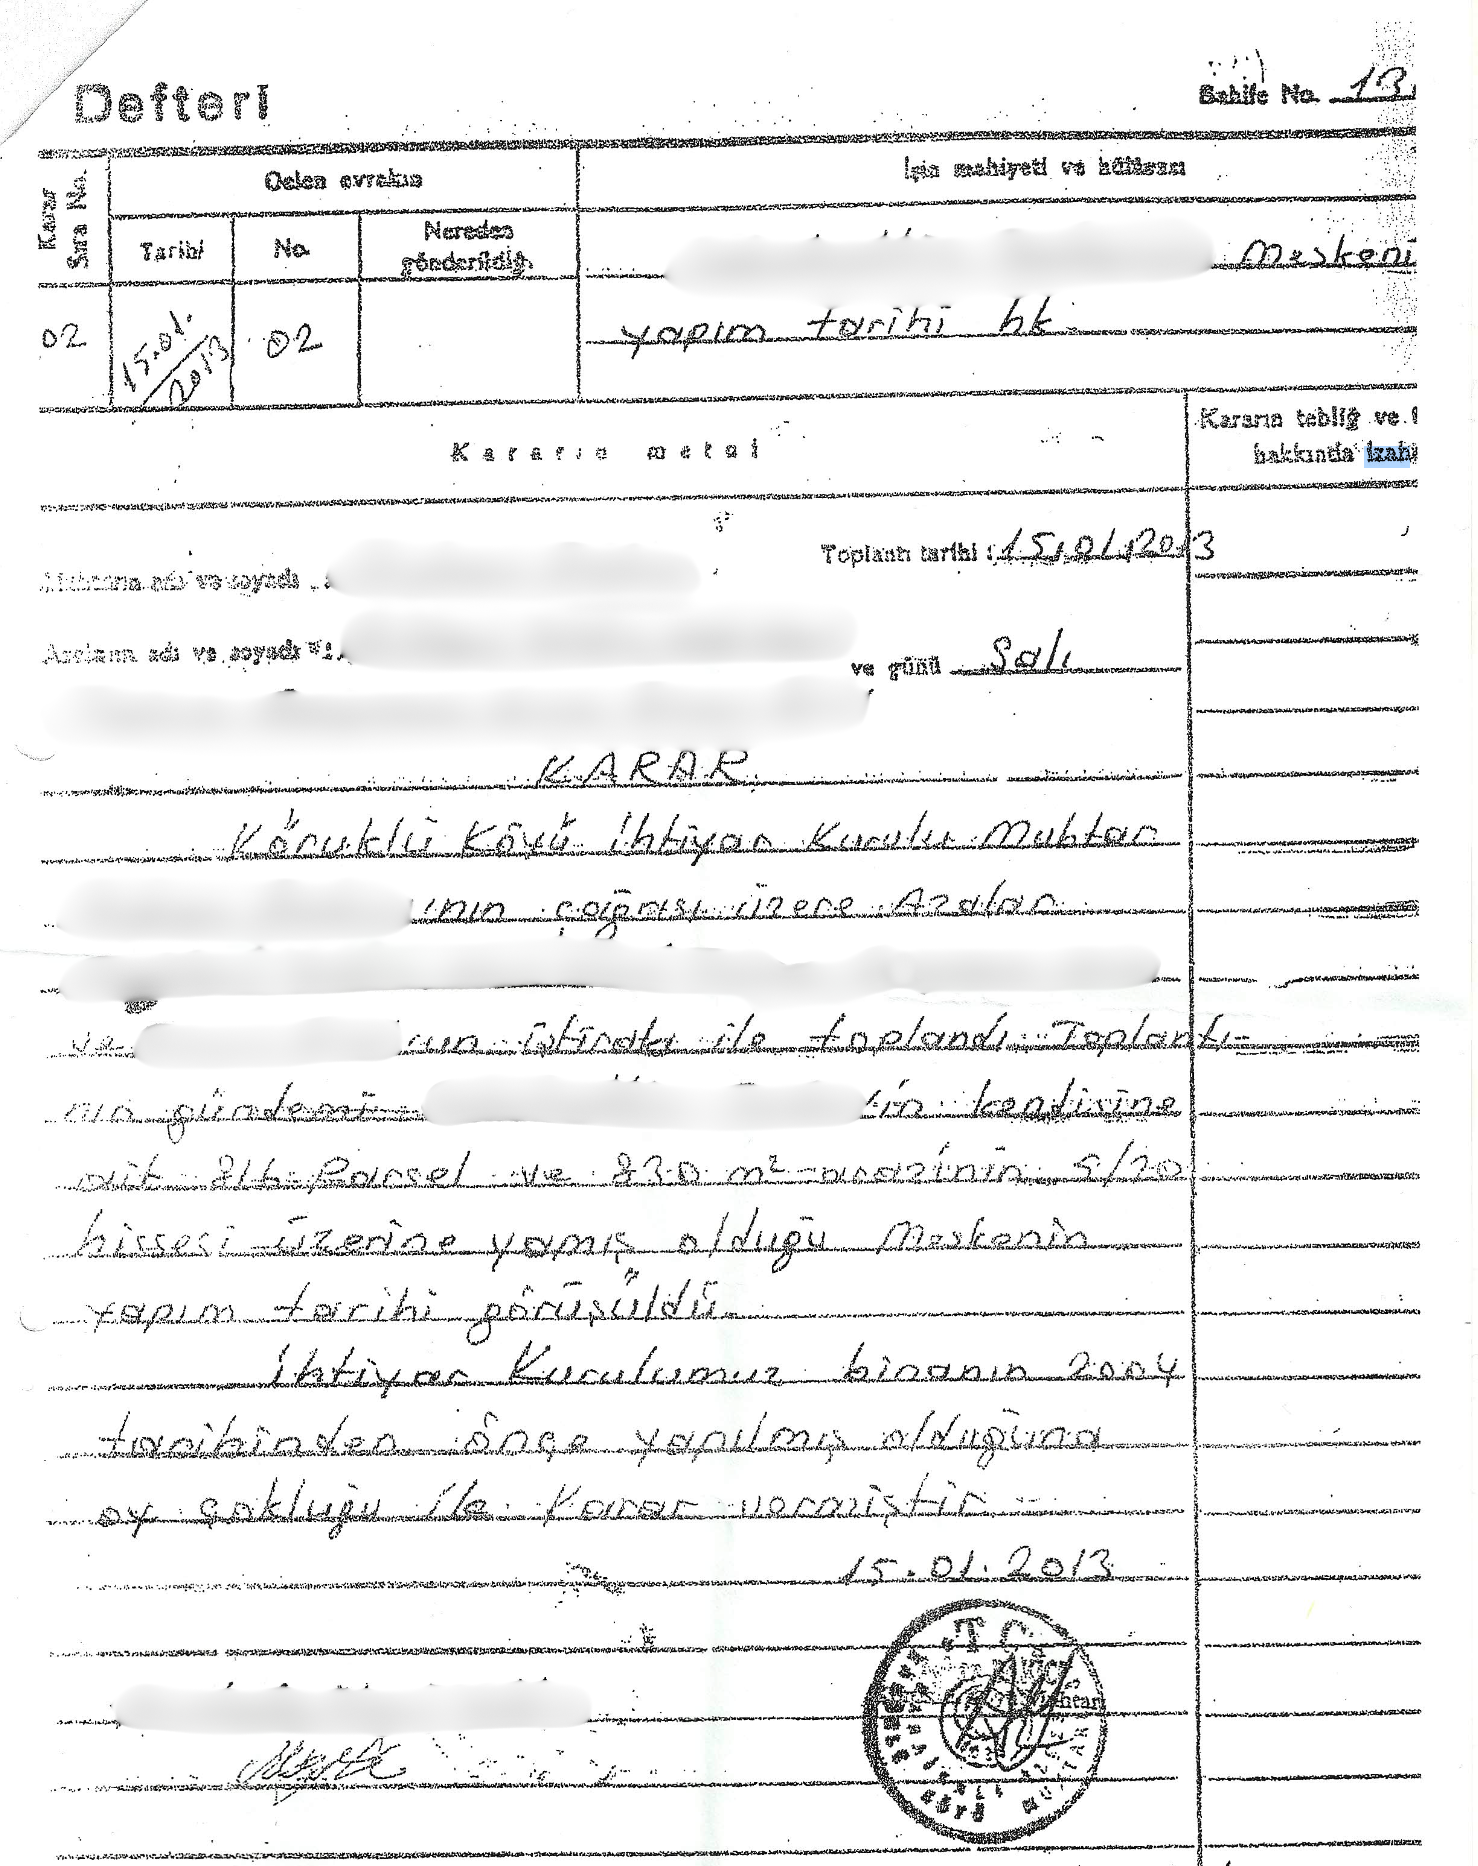 Defteri
Sahife No. 13
Karar Sıra No.
Gelen evrakın
İşin mahiyeti ve hülâsası
Tarihi
No.
Nereden gönderildiği
Meskeni
02
15.01.2013
02
yapım tarihi hk.
Kararın metni
Kararın tebliğ ve
hakkında izahı
Toplantı tarihi : 15.01.2013
Muhtarın adı ve soyadı :
Azaların adı ve soyadı 1.
ve günü Salı
KARAR
Körüklü Köyü İhtiyar Kurulu Muhtar
'nın çağrası üzere Azalar
ve 'un iştiraki ile toplandı. Toplantı-
nın gündemi 'in kendisine
ait 816 Parsel ve 830 m² arazinin 5/20
hissesi üzerine yamış olduğu Meskenin
yapım tarihi görüşüldü.
İhtiyar Kurulumuz binanın 2004
tarihinden önçe yapılmış olduğuna
oy çokluğu ile Karar vermiştir.
15.01.2013
T.C.
Muhtarı